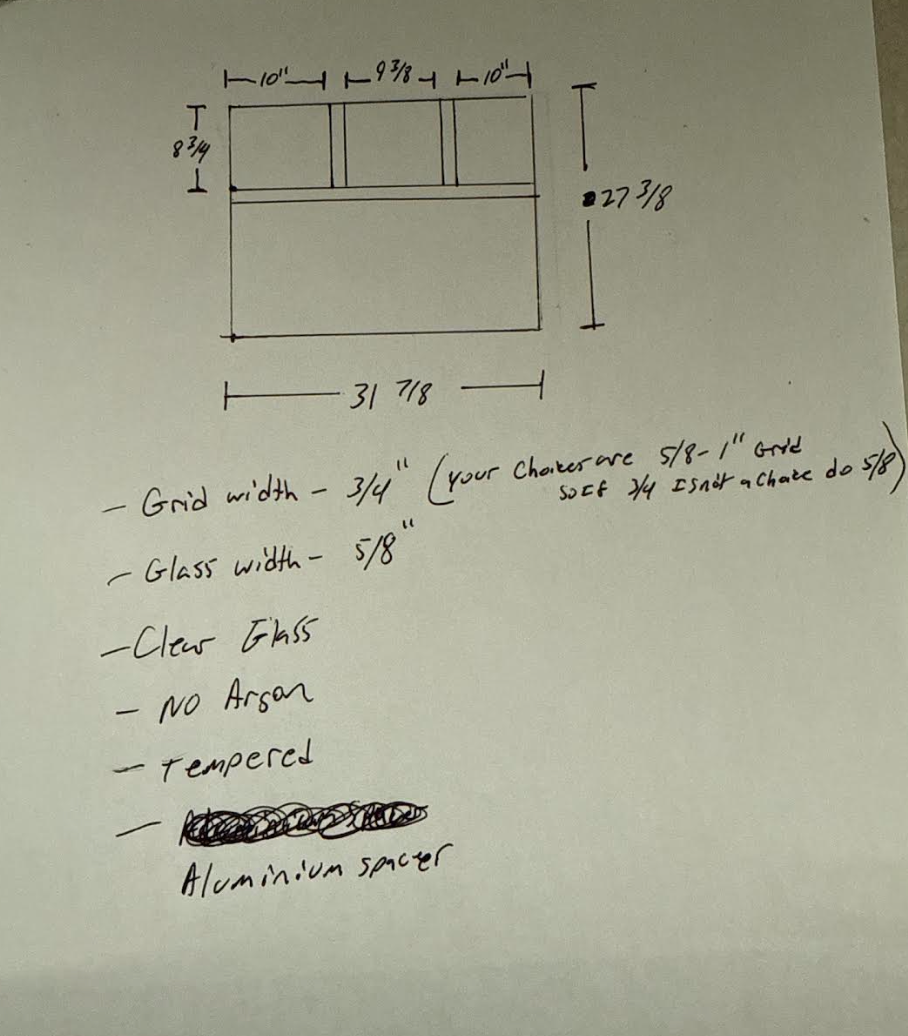 10" 9 3/8 10"
8 3/4
27 3/8
31 7/8
- Grid width - 3/4" (your choices are 5/8 - 1" Grid
so If 3/4 Isn't a choice do 5/8)
- Glass width - 5/8"
- Clear Glass
- NO Argon
- Tempered
-
Aluminium spacer